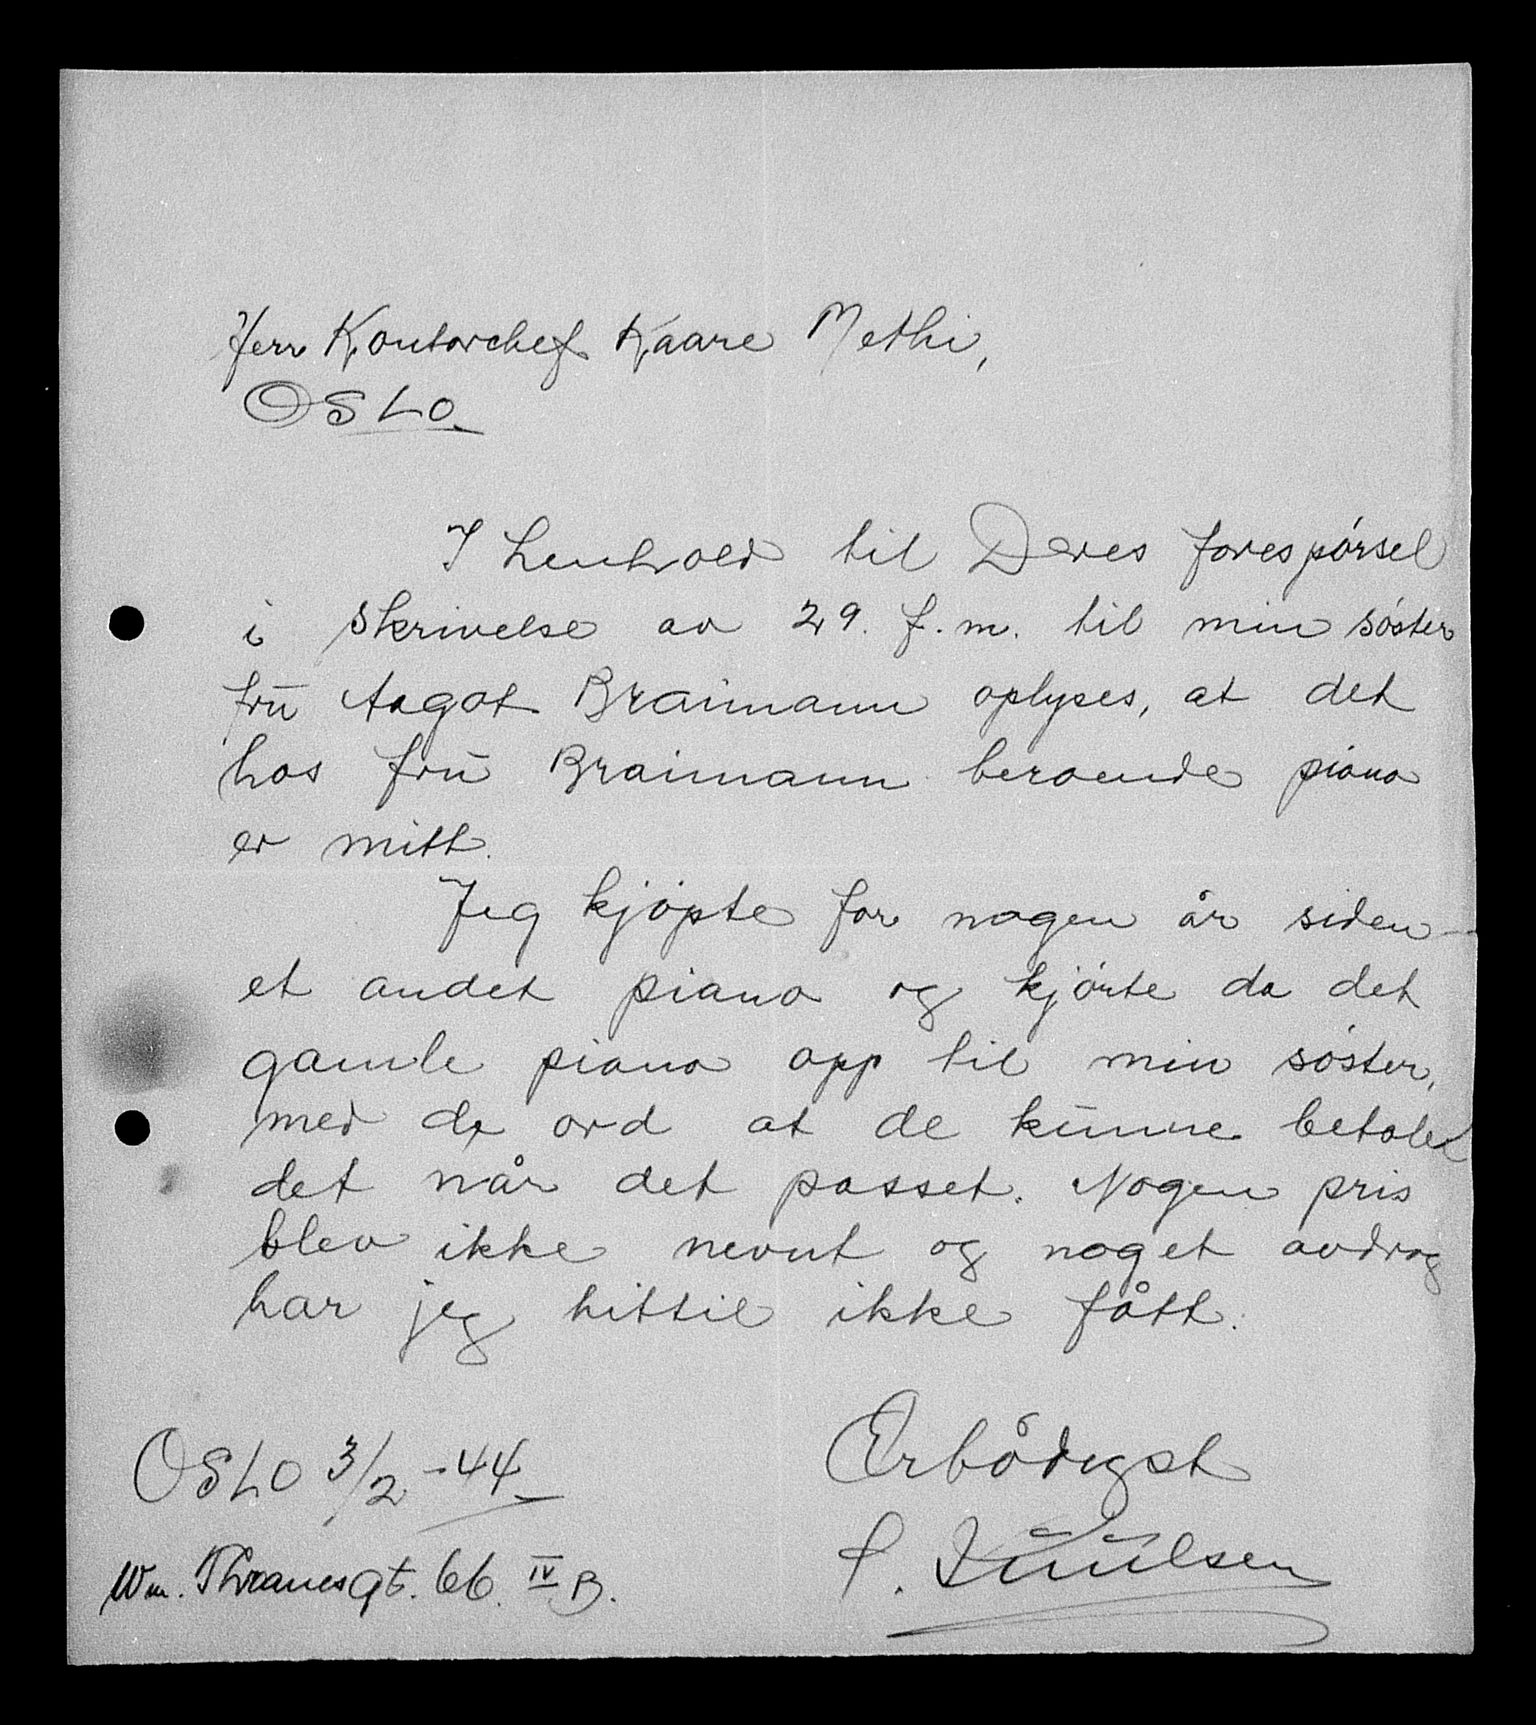 Herr Kontorchef Kaare Methi,
OSLO.
I henhold til Deres forespørsel
i skrivelse av 29. f.m. til min søster
fru Aagot Braimann oplyses, at det
hos fru Braimann beroende piano
er mitt.
Jeg kjøpte for nogen år siden
et andet piano og kjørte da det
gamle piano opp til min søster,
med de ord at de kunne betale
det når det passet. Nogen pris
blev ikke nevnt og noget avdrag
har jeg hittil ikke fått.
Erbødigst
OSLO 3/2 -44
Wm. Thranesgt. 66 IV B.